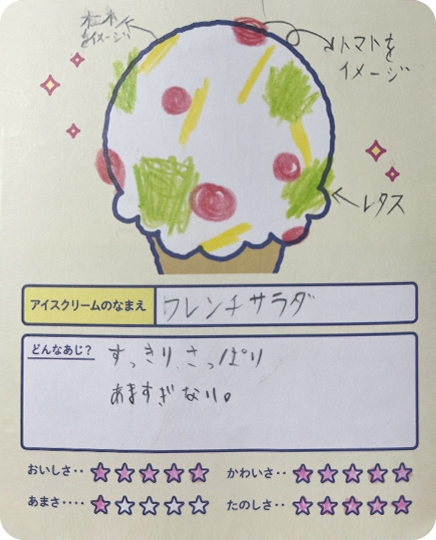 をイメージ
トマトを
イメージ
レタス
アイスクリームのなまえ
フレンチサラダ
どんなあじ?
すっきり、さっぱり
あますぎない。
おいしさ‥
かわいさ‥
あまさ‥‥
たのしさ‥